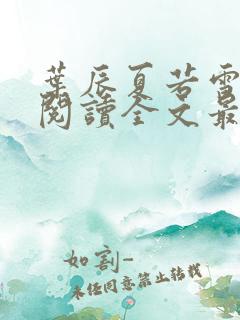 葉辰夏若雪
閱讀全文最
如割-
未经同意禁止转载